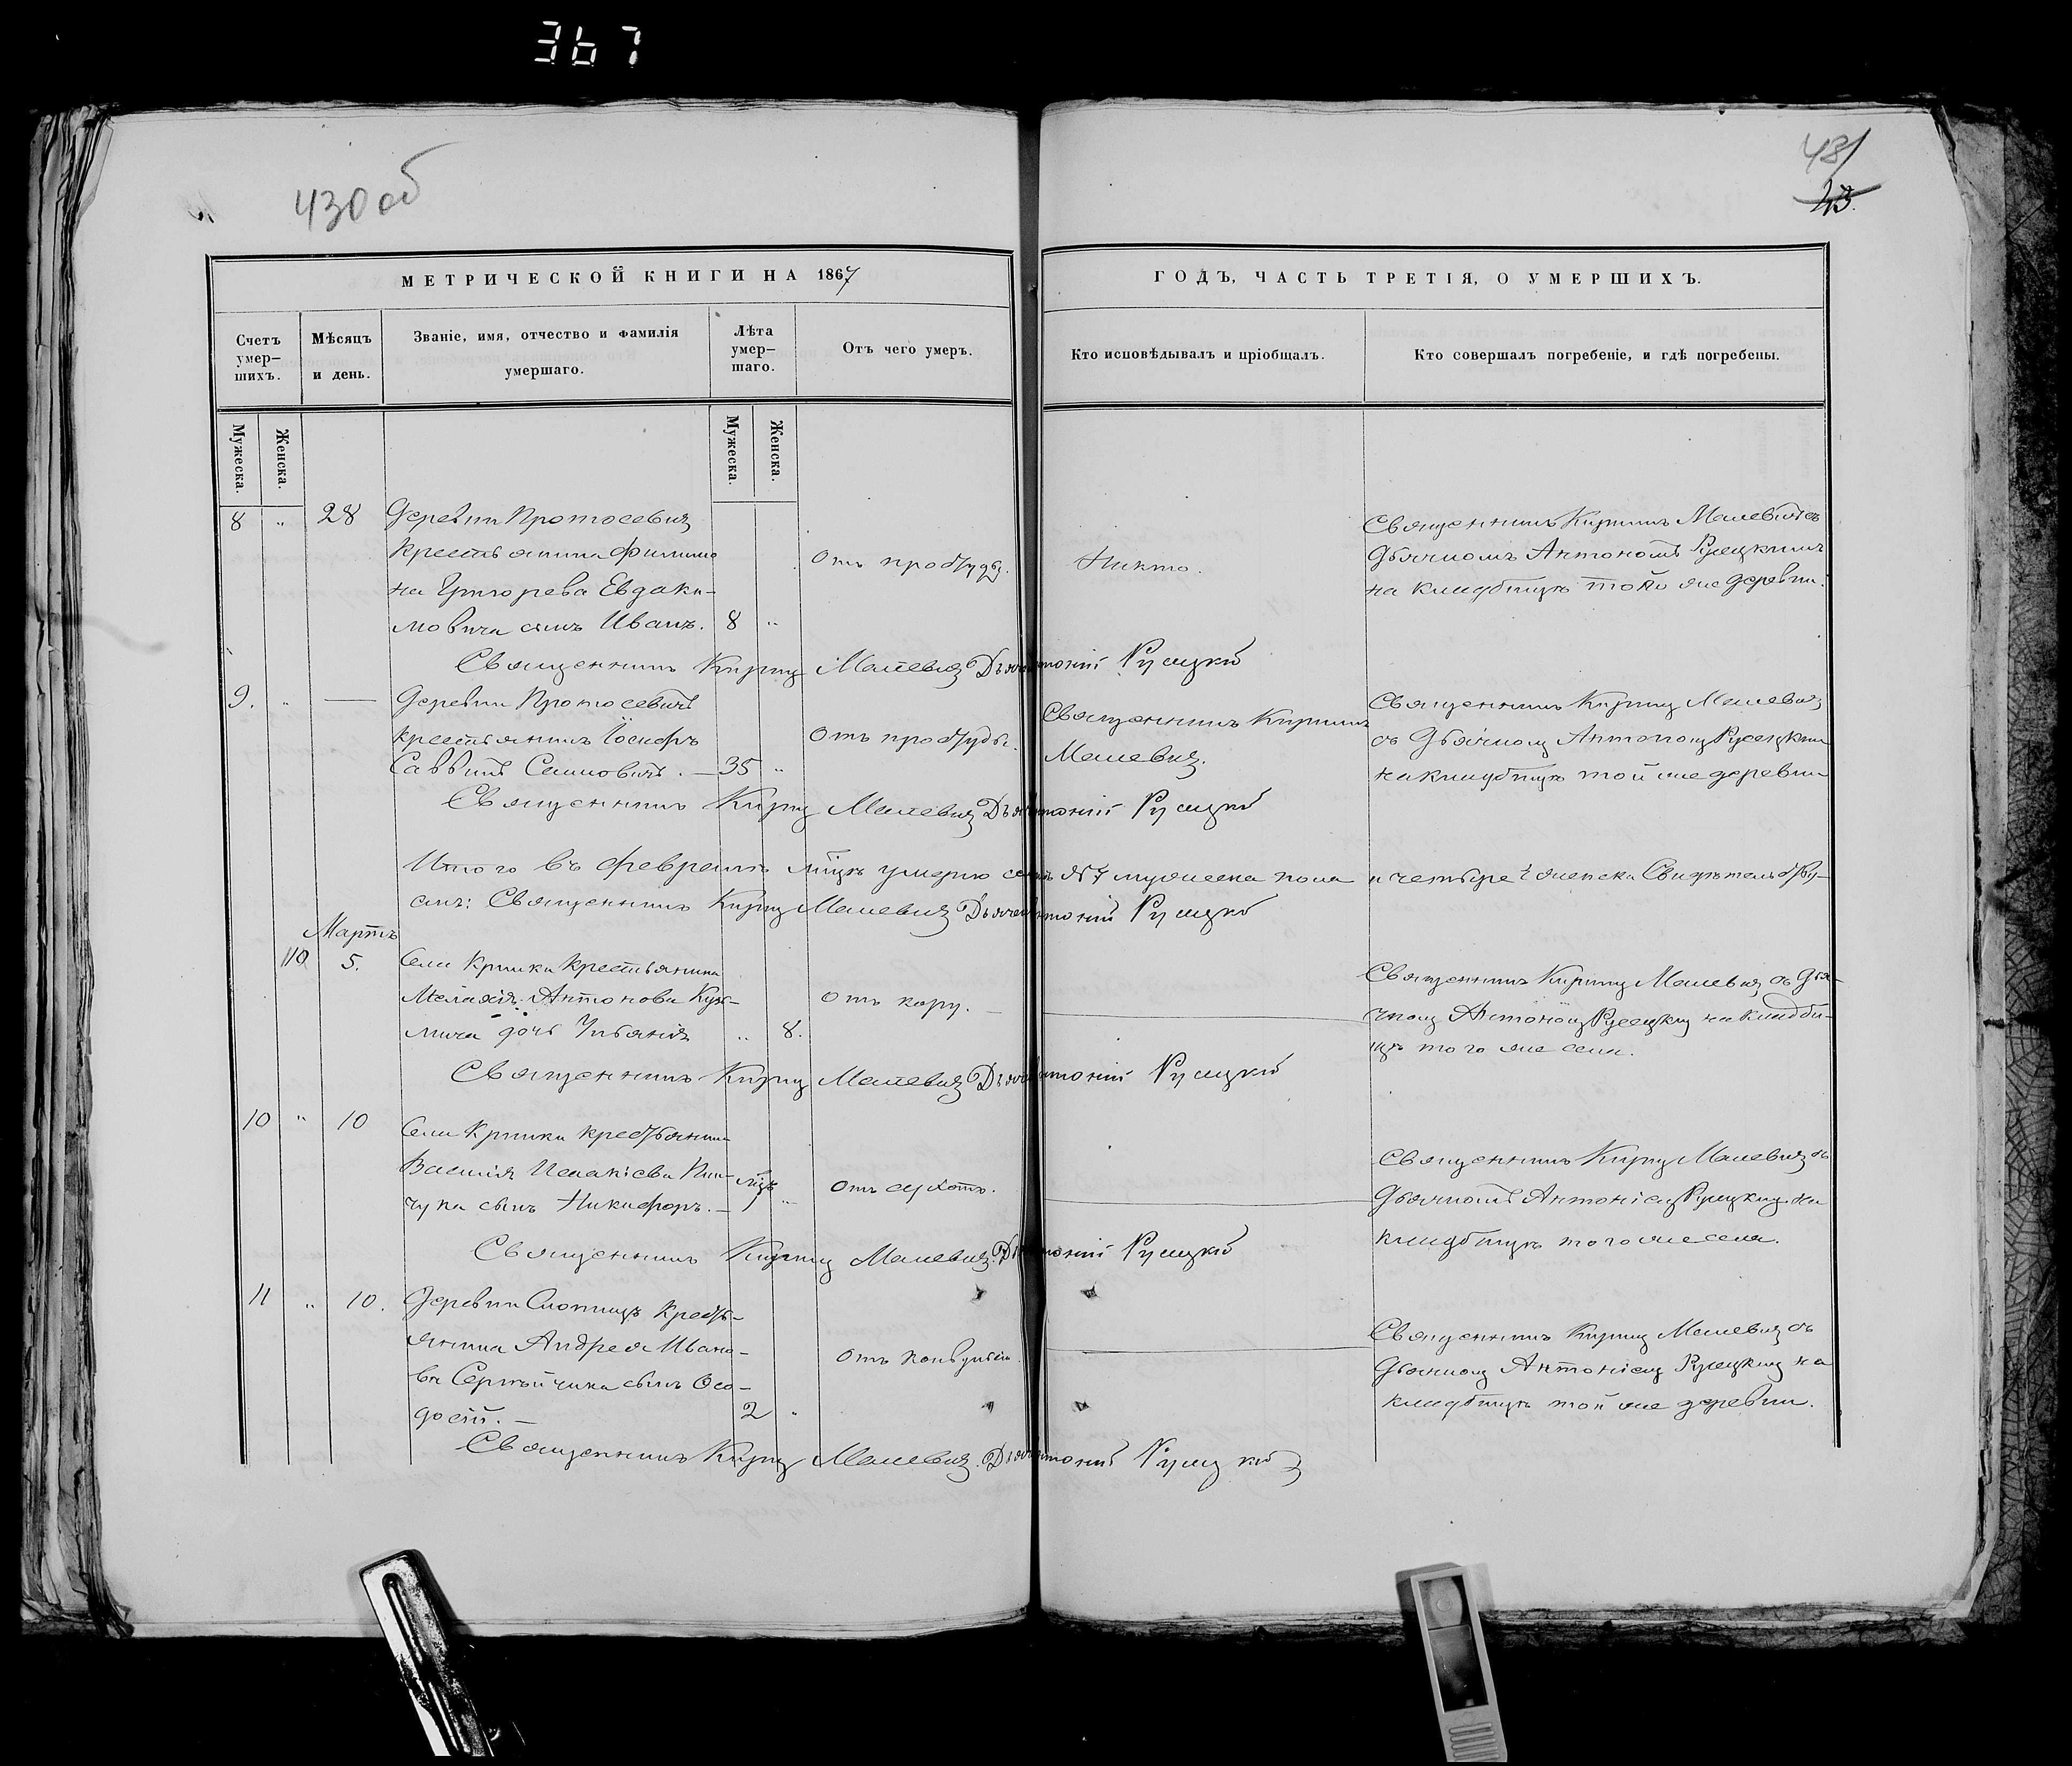 367
430 об
431
43.
МЕТРИЧЕСКОЙ КНИГИ НА 1867
ГОДЪ, ЧАСТЬ ТРЕТІЯ, О УМЕРШИХЪ.
Счетъ умер-
шихъ.
Мѣсяцъ
и день.
Званіе, имя, отчество и фамилія
умершаго.
Лѣта
умер-
шаго.
Отъ чего умеръ.
Кто исповѣдывалъ и пріобщалъ.
Кто совершалъ погребеніе, и гдѣ погребены.
Мужеска.
Женска.
Мужеска.
Женска.
8 „ 28 Деревни Протосевичъ
крестьянина Филимо
на Григорева Евдаки-
мовича сынъ Иванъ. 8 „
Отъ простуды.
Никто.
Священникъ Кирилъ Малевичъ съ
Дьячкомъ Антономъ Русецкимъ
на кладбищѣ той же деревни.
Священникъ Кирилъ Малевичъ Дьячекъ Антоній Русецкій
9. „ — Деревни Протосевичъ
крестьянинъ Іосифъ
Саввинъ 35 „
Отъ простуды.
Священникъ Кирилъ
Малевичъ.
Священникъ Кирилъ Малевичъ
съ Дьячкомъ Антономъ Русецкимъ
на кладбищѣ той же деревни
Священникъ Кирилъ Малевичъ Дьячекъ Антоній Русецкій
Итого въ Февралѣ м̃цѣ умерло семь 7 мужеска пола и четыре женска Свидѣтельству-
емъ: Священникъ Кирилъ Малевичъ Дьячекъ Антоній Русецкій
Мартъ
10 5. Села Кривки крестьянина
Антонова Кузь-
мича дочь „ 8.
Отъ кору. —
Священникъ Кирилъ Малевичъ съ Дья-
чкомъ Антономъ Русецкимъ на кладби-
щѣ того же села.
Священникъ Кирилъ Малевичъ Дьячекъ Антоній Русецкій
10 „ 10 Села Кривки крестьянина
Василія Исакіева
сынъ Никифоръ. — м̃цъ 1 „
Отъ сухотъ.
Священникъ Кирилъ Малевичъ съ
Дьячкомъ Антоніемъ Русецкимъ на
кладбищѣ того же села.
Священникъ Кирилъ Малевичъ. Дьячекъ Антоній Русецкій
11 „ 10. Деревни кресть-
янина Андрея Ивано-
ва сынъ Ѳео-
досій. — 2 „
Отъ конвульсіи.
Священникъ Кирилъ Малевичъ съ
Дьячкомъ Антоніемъ Русецкимъ на
кладбищѣ той же деревни.
Священникъ Кирилъ Малевичъ. Дьячекъ Антоній Русецкій